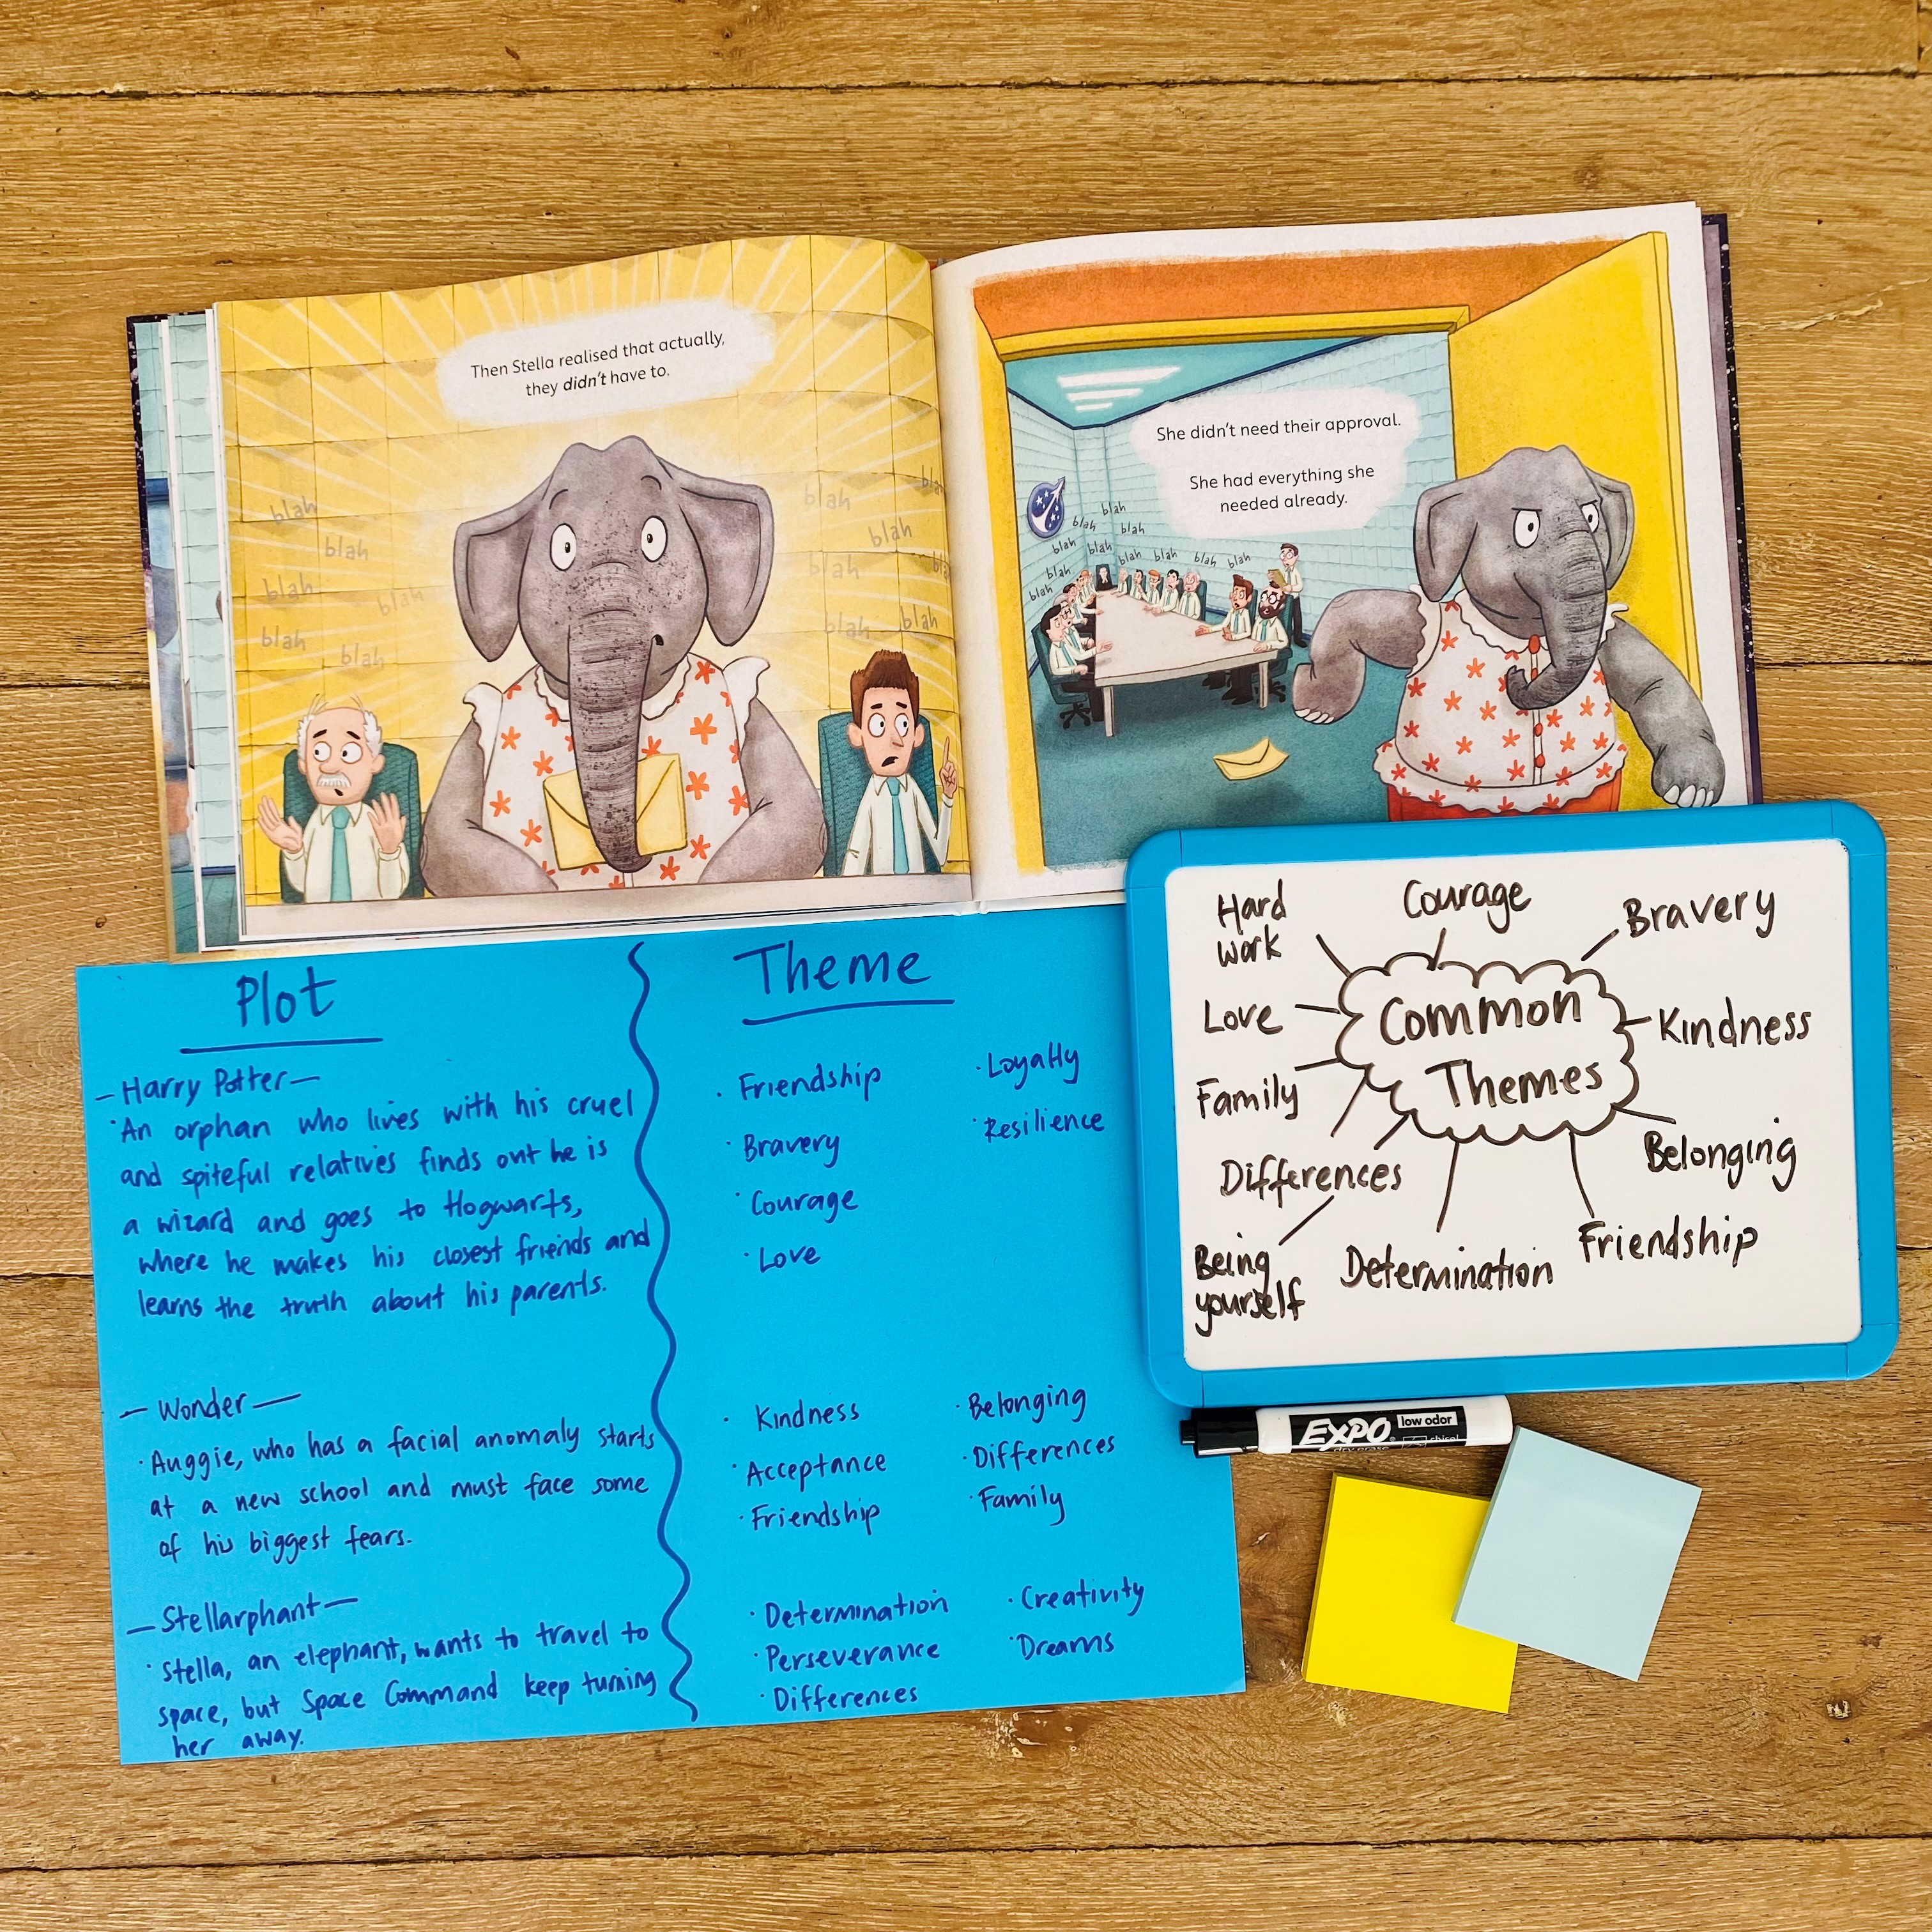 Then Stella realised that actually,
they didn't have to.
blah
blah
blah
blah
blah
blah
blah
blah
blah
blah
blah
She didn't need their approval.
She had everything she
needed already.
blah
blah
blah
blah
blah
blah
blah
blah
blah
blah
blah
Plot
— Harry Potter —
· An orphan who lives with his cruel
and spiteful relatives finds out he is
a wizard and goes to Hogwarts,
where he makes his closest friends and
learns the truth about his parents.
— Wonder —
· Auggie, who has a facial anomaly starts
at a new school and must face some
of his biggest fears.
— Stellarphant —
· Stella, an elephant, wants to travel to
space, but Space Command keep turning
her away.
Theme
· Friendship
· Bravery
· Courage
· Love
· Loyalty
· Resilience
· Kindness
· Acceptance
· Friendship
· Belonging
· Differences
· Family
· Determination
· Perseverance
· Differences
· Creativity
· Dreams
Common
Themes
Hard
work
Courage
Bravery
Love
Kindness
Family
Belonging
Differences
Friendship
Being
yourself
Determination
EXPO
low odor
dry erase
chisel